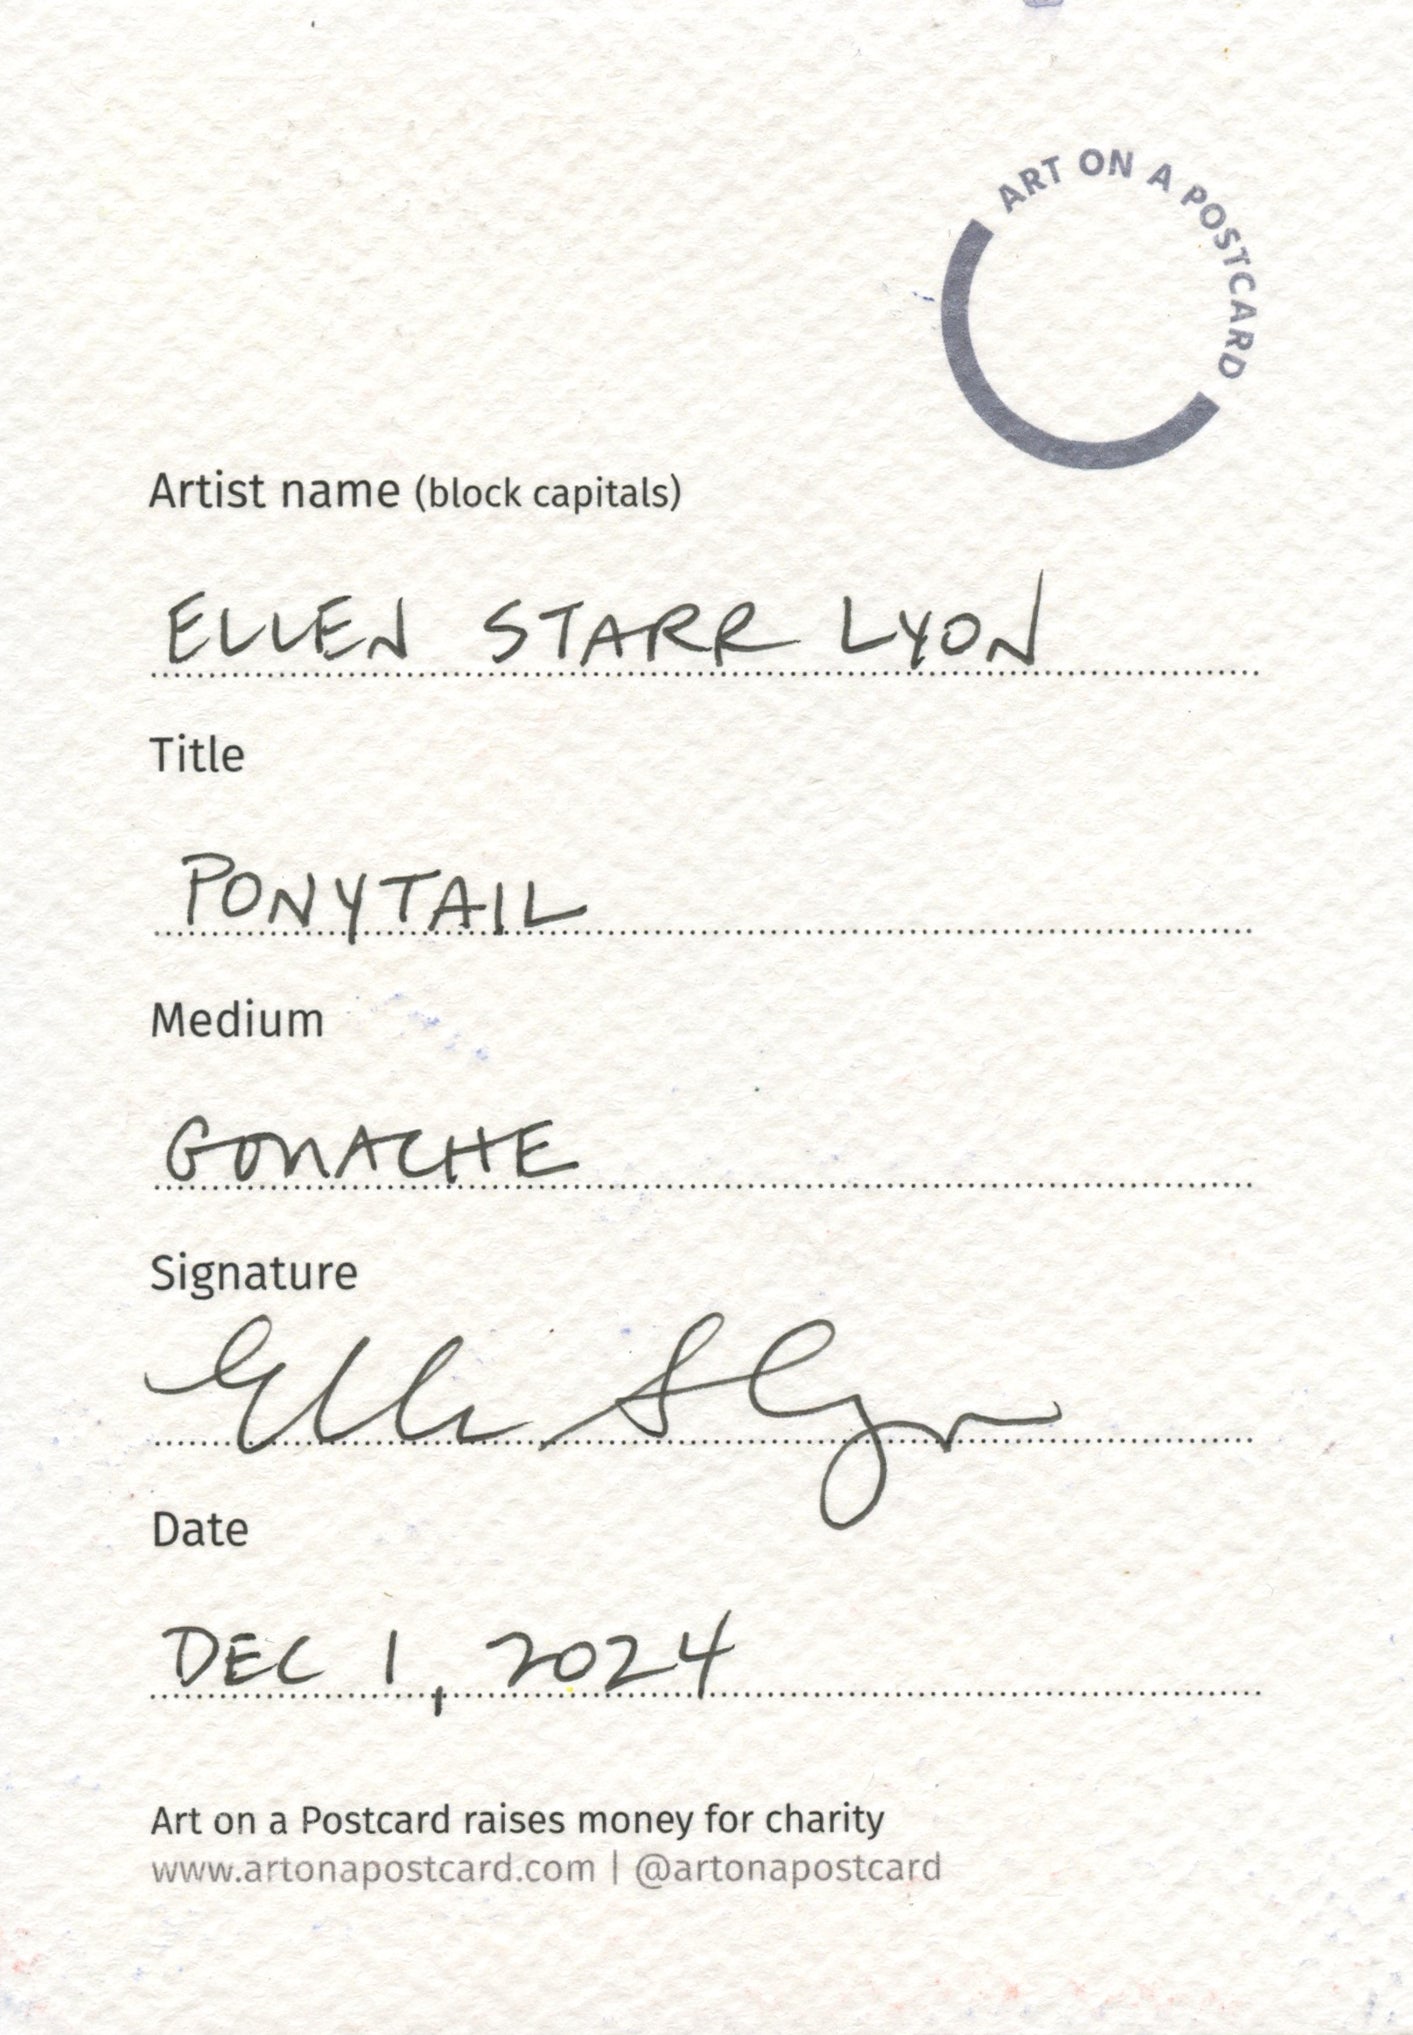 ART ON A POSTCARD
Artist name (block capitals)
ELLEN STARR LYON
Title
PONYTAIL
Medium
GOUACHE
Signature
Ellen S Lyon
Date
DEC 1, 2024
Art on a Postcard raises money for charity
www.artonapostcard.com | @artonapostcard